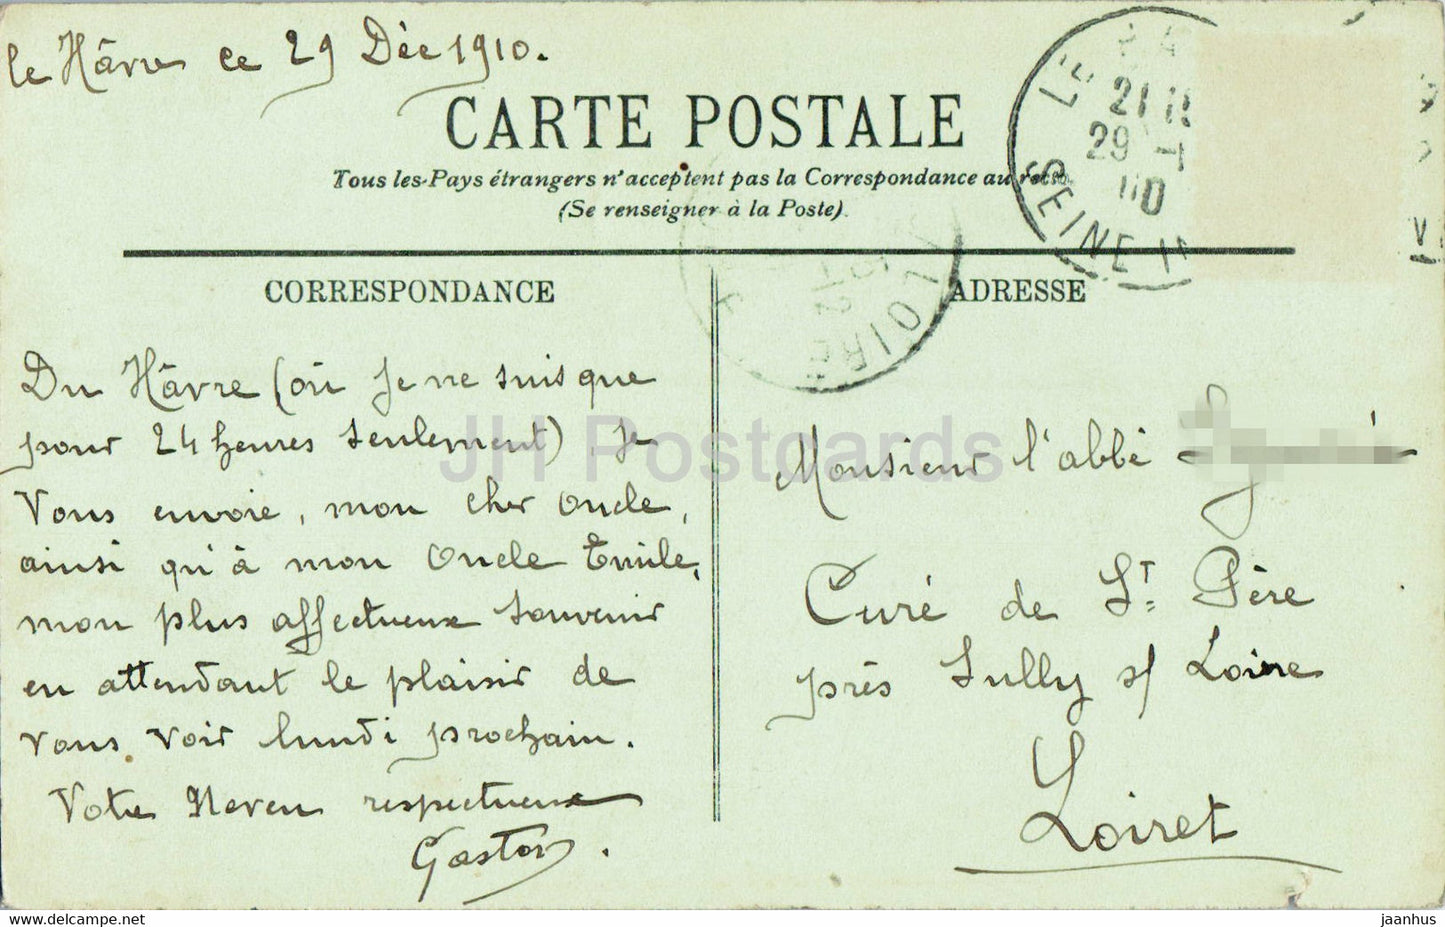 le Hâvre ce 29 Déc 1910.
CARTE POSTALE
Tous les Pays étrangers n'acceptent pas la Correspondance au recto
(Se renseigner à la Poste).
LE HA
21
29
SEINE
LOIRE
CORRESPONDANCE
Du Hâvre (où je ne suis que
pour 24 heures seulement), je
vous envoie, mon cher oncle,
ainsi qu'à mon Oncle Emile,
mon plus affectueux souvenir
en attendant le plaisir de
vous voir lundi prochain.
Votre Neveu respectueux
Gaston.
ADRESSE
Monsieur l'abbé
Curé de St Père
près Sully s/ Loire
Loiret
JH Postcards
jaanhus